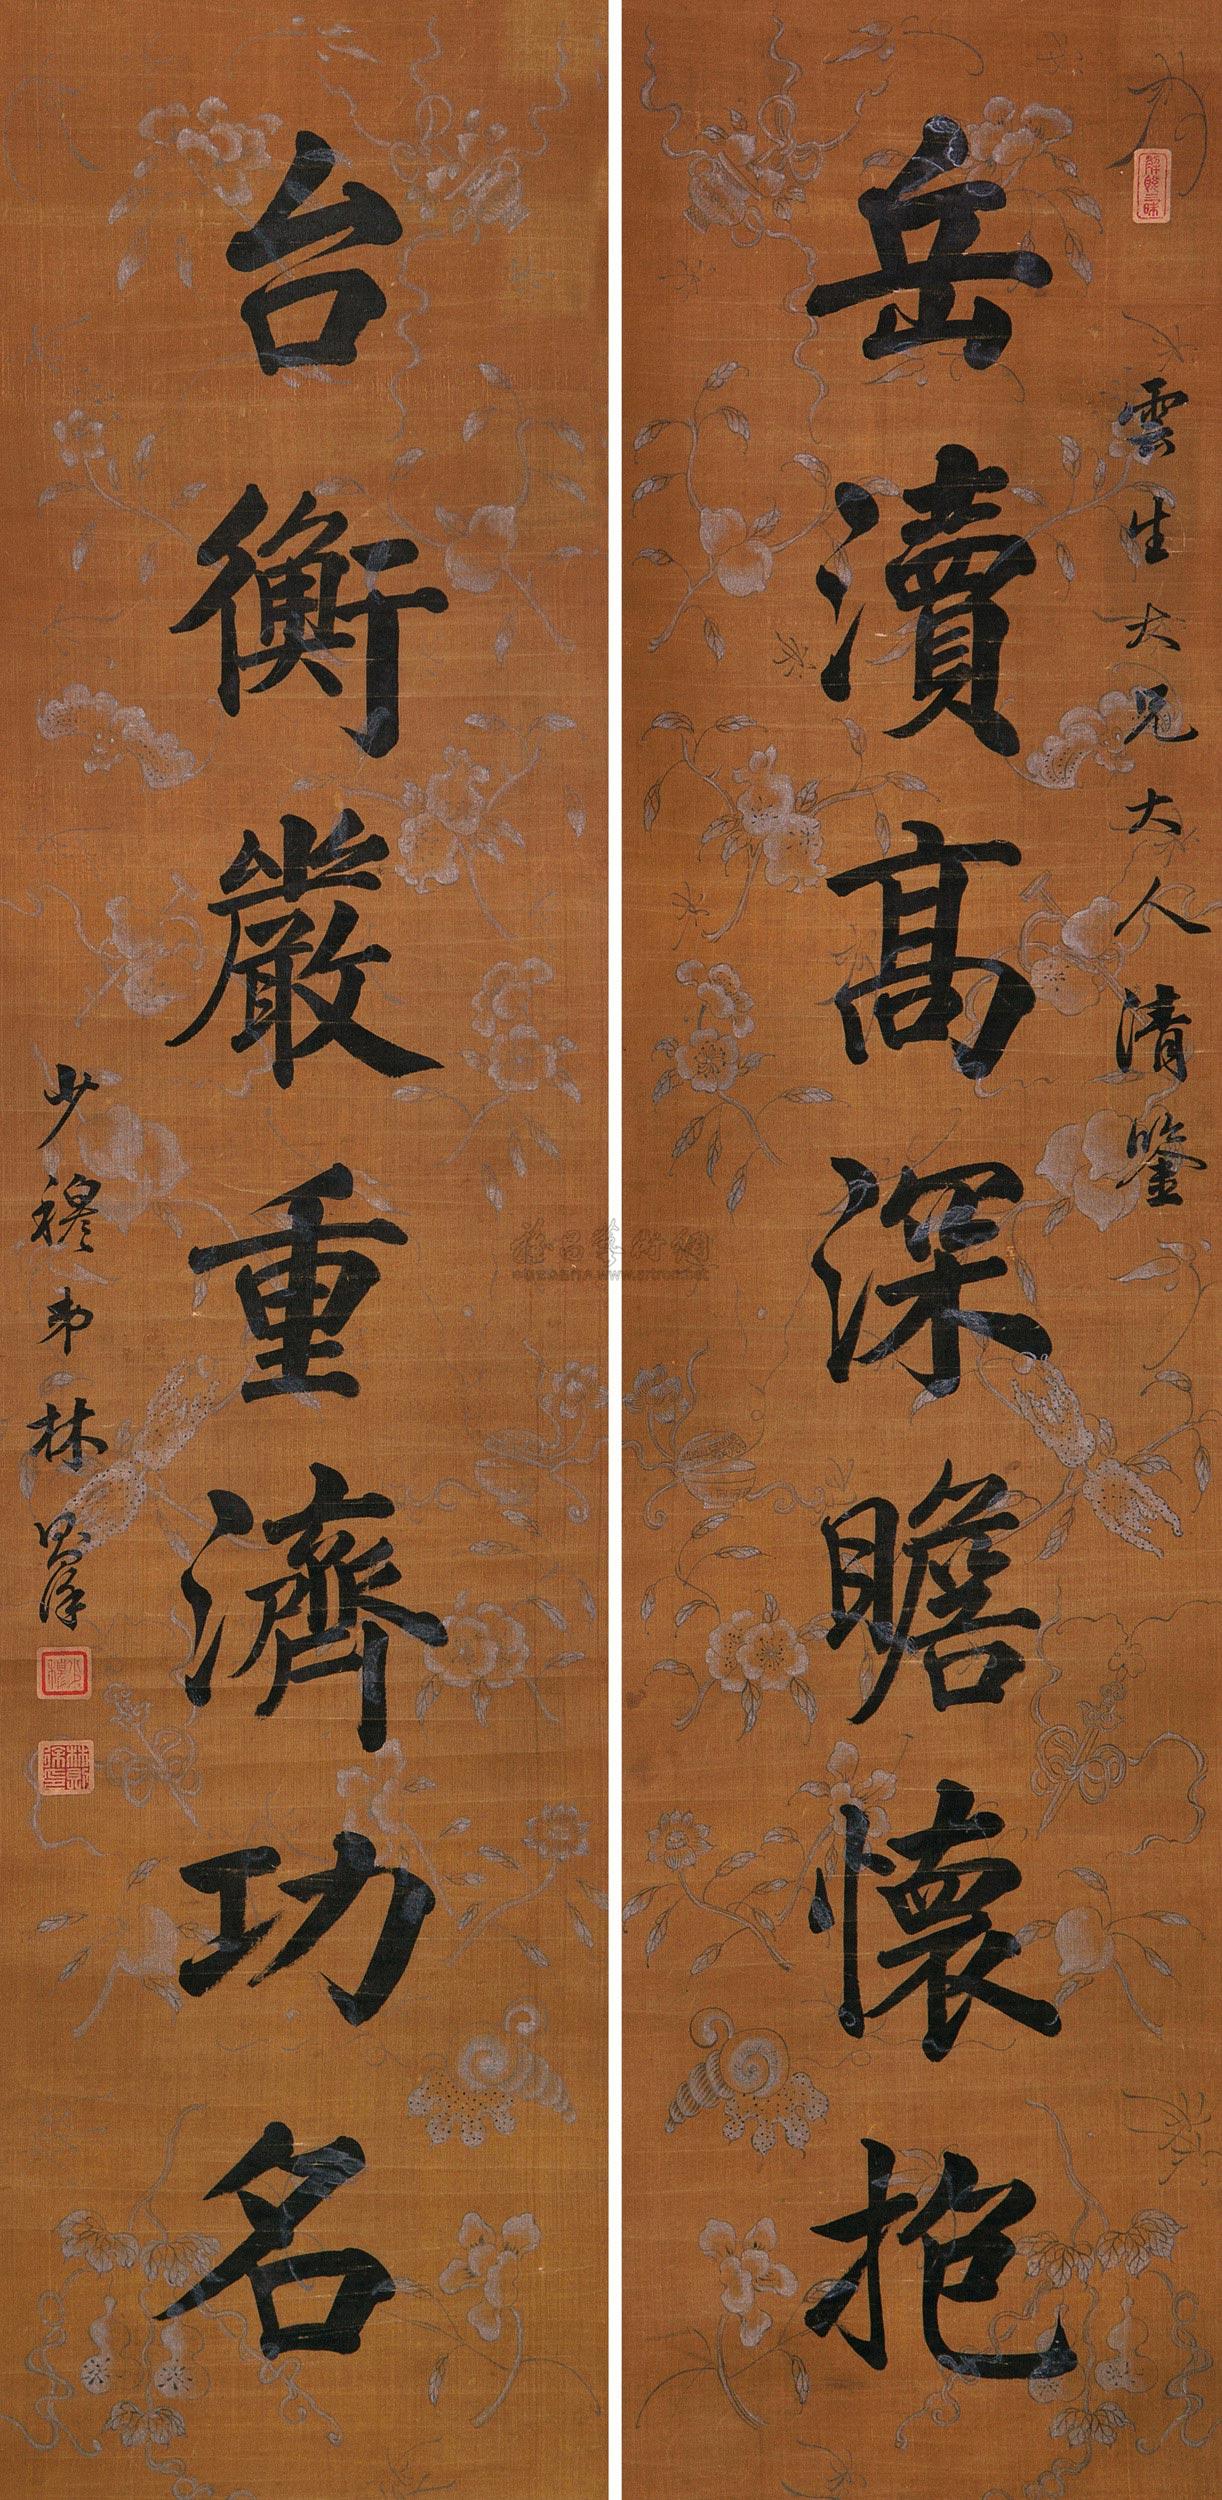 雲生大兄大人清鑒
岳瀆高深瞻懷抱
台衡嚴重濟功名
少穆弟林則徐
少穆
林則徐印